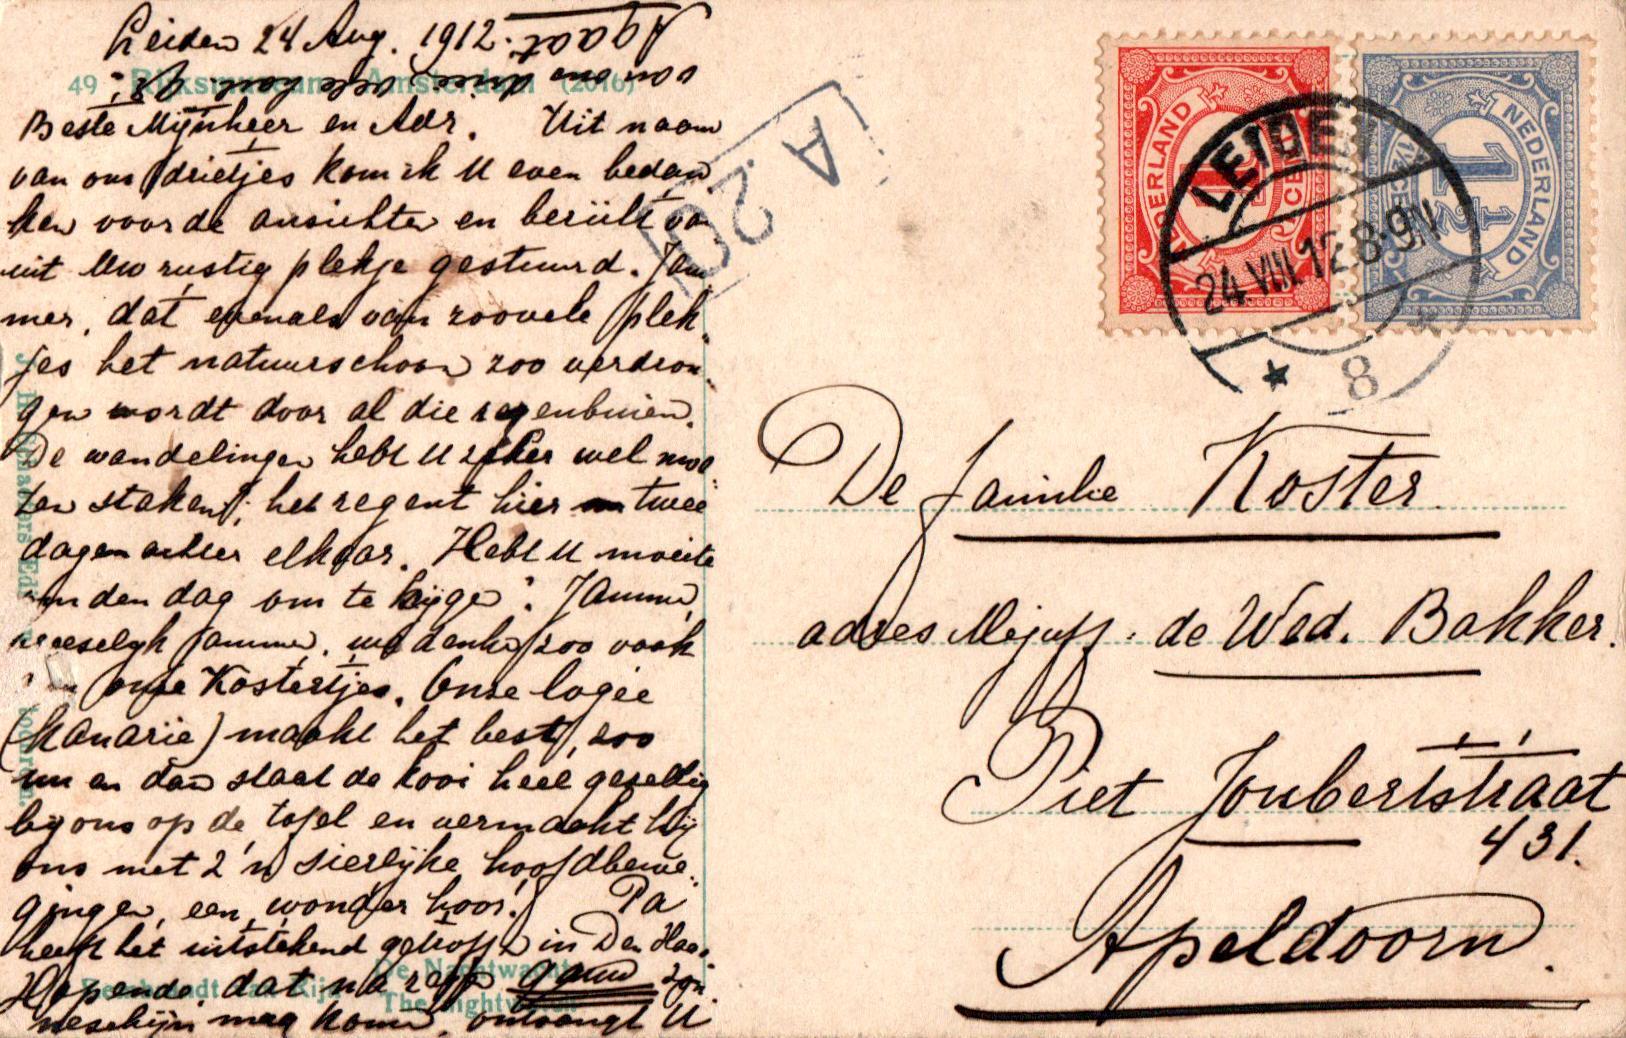 Leiden 24 Aug. 1912.
49 Rijksmuseum Amsterdam (2016)
Beste Mynheer en Adr. Uit naam
van ons drietjes kom ik U even bedan
ken voor de ansichten en bericht
uit Uw rustig plekje gestuurd. Jam
mer, dat evenals van zoovele plek„
jes het natuurschoon zoo verdron„
gen wordt door al die regenbuien.
De wandelingen hebt U zeker wel moe„
ten staken; het regent hier twee
dagen achter elkaar. Hebt U moeite
den dag om te krijgen? Jammer,
vreeselyk jammer, we denken zoo vaak
onze Kostertjes. Onze logée
(kanarie) maakt het best, zoo
nu en dan staat de kooi heel gezellig
by ons op de tafel en vermaakt hij
ons met z'n sierlijke hoofdbewe„
gingen, een wonder hoor! Pa
heeft het uitstekend getroffen in Den Haag.
Hopende, dat na regen gauw zon„
neschijn mag komen, ontvangt U
van ons drieën vele gr.
Agaat
De Nachtwacht
Rembrandt van Rijn
The Nightwatch
A
20
NEDERLAND
1
CENT
NEDERLAND
1½
1½ CENT
LEIDEN
24.VIII.12.8-9N
* 8 *
De Familie Koster
adres Mejuff. de Wed. Bakker.
Piet Joubertstraat
431.
Apeldoorn.